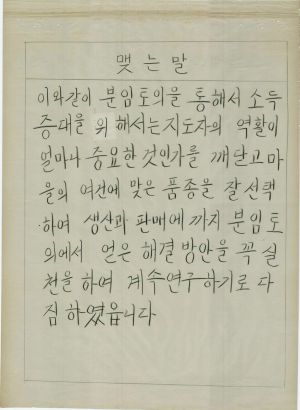 맺는말
이와같이 분임토의을 통해서 소득
증대을 위해서는 지도자의 역활이
얼마나 중요한 것인가를 깨닫고 마
을의 여건에 맞은 품종을 잘 선택
하여 생산과 판매에 까지 분임토
의에서 얻은 해결 방안을 꼭 실
천을 하여 계속연구하기로 다
짐 하였읍니다